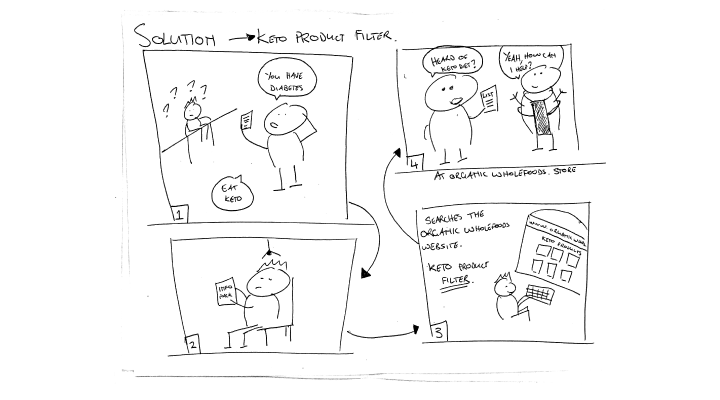 SOLUTION → KETO PRODUCT FILTER.
? ? ? ?
YOU HAVE
DIABETES
EAT
KETO
1
INFO
PACK
2
SEARCHES THE
ORGANIC WHOLEFOODS
WEBSITE.
KETO PRODUCT
FILTER.
ORGANIC
KETO PRODUCTS
3
HEARD OF
KETO DIET?
YEAH, HOW CAN
I HELP?
LIST
4
AT ORGANIC WHOLEFOODS. STORE